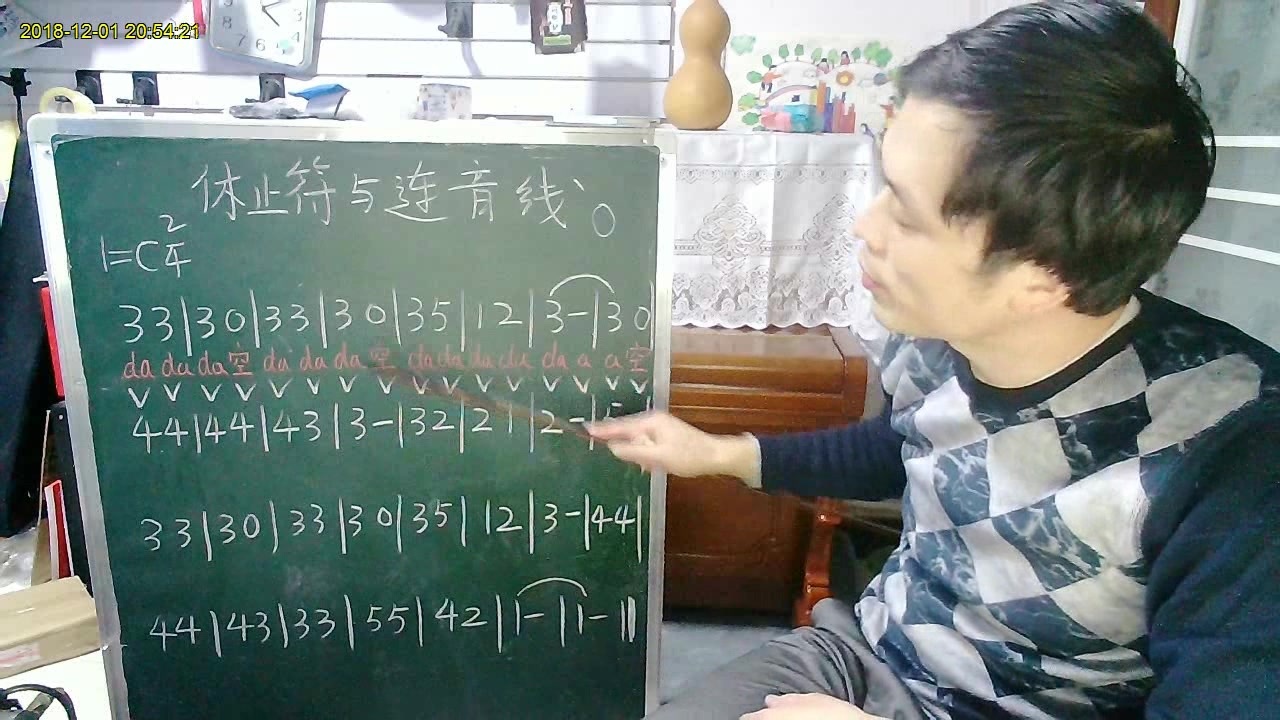 2018-12-01 20:54:21
休止符与连音线、0
1=C 2/4
33|30|33|30|35|12|3-|30|
da da da 空 da da da 空 da da da da da a a 空
V V V V V V V V V V V V V V V V
44|44|43|3-|32|21|2-|
33|30|33|30|35|12|3-|44|
44|43|33|55|42|1-|1-||